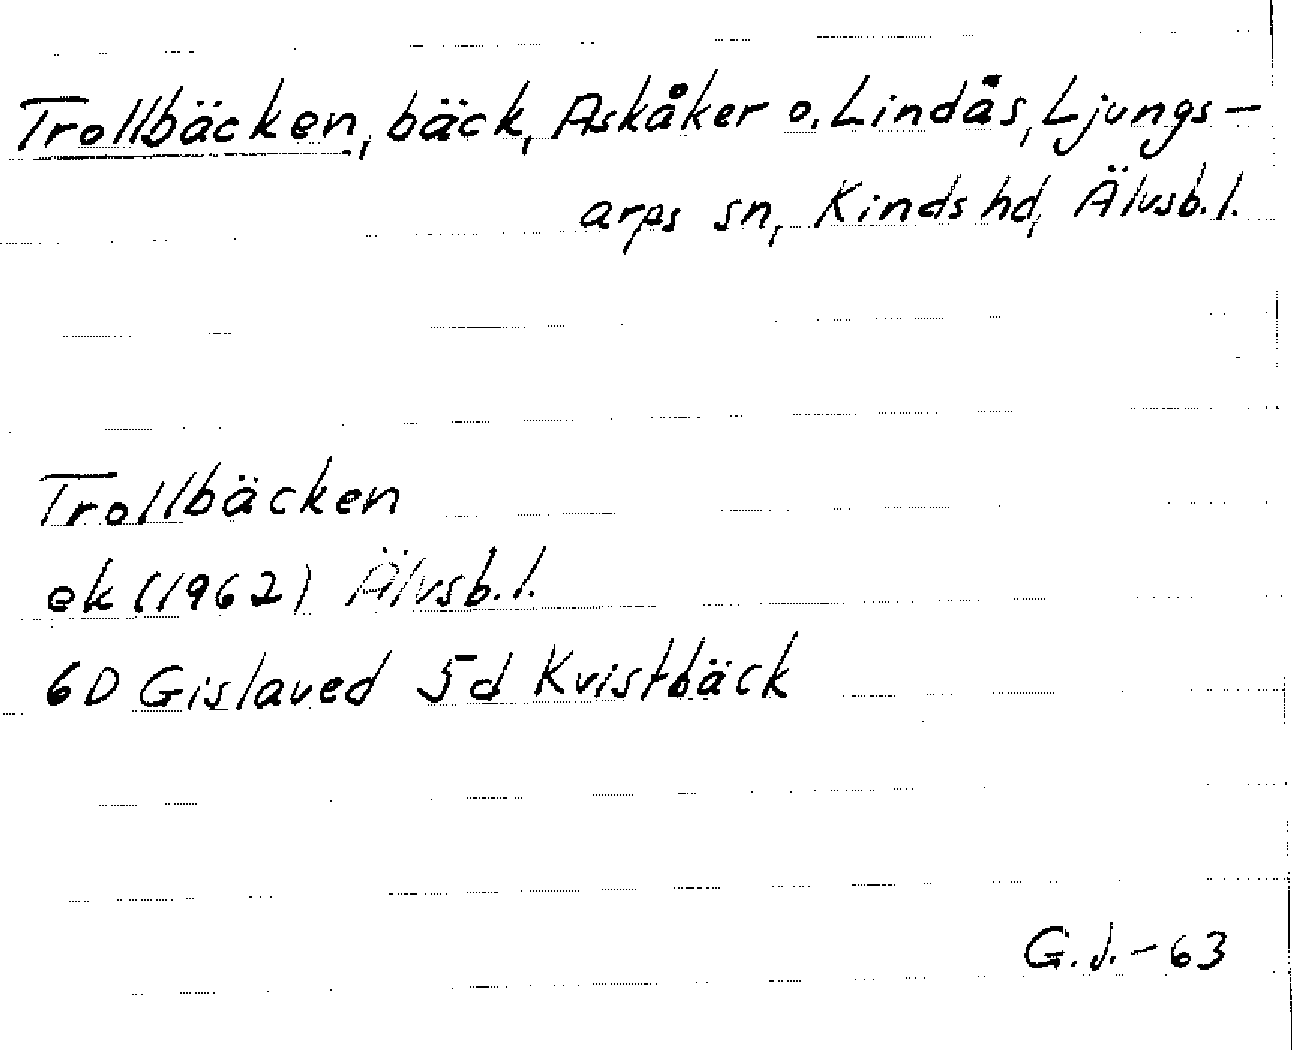 Trollbäcken, bäck, Askåker o. Lindås, Ljungs-
arps sn, Kinds hd, Älvsb.l.
Trollbäcken
ek (1962) Älvsb.l.
6D Gislaved 5d Kvistbäck
G.J.-63